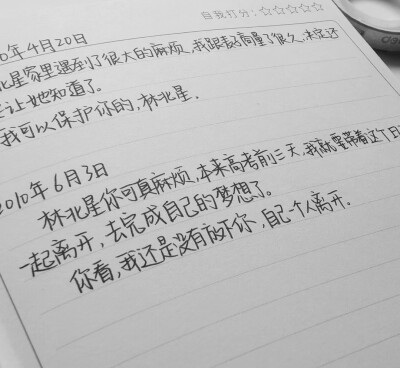 自我打分：☆☆☆☆☆
0年4月20日
北星家里遇到了很大的麻烦，我跟磊商量了很久，决定还
让她知道了。
我可以保护你的，林北星．
2010年6月3日
林北星你可真麻烦，本来高考前三天，我就要带着这个日
一起离开，去完成自己的梦想了。
你看，我还是没有放下你，自己一个人离开．